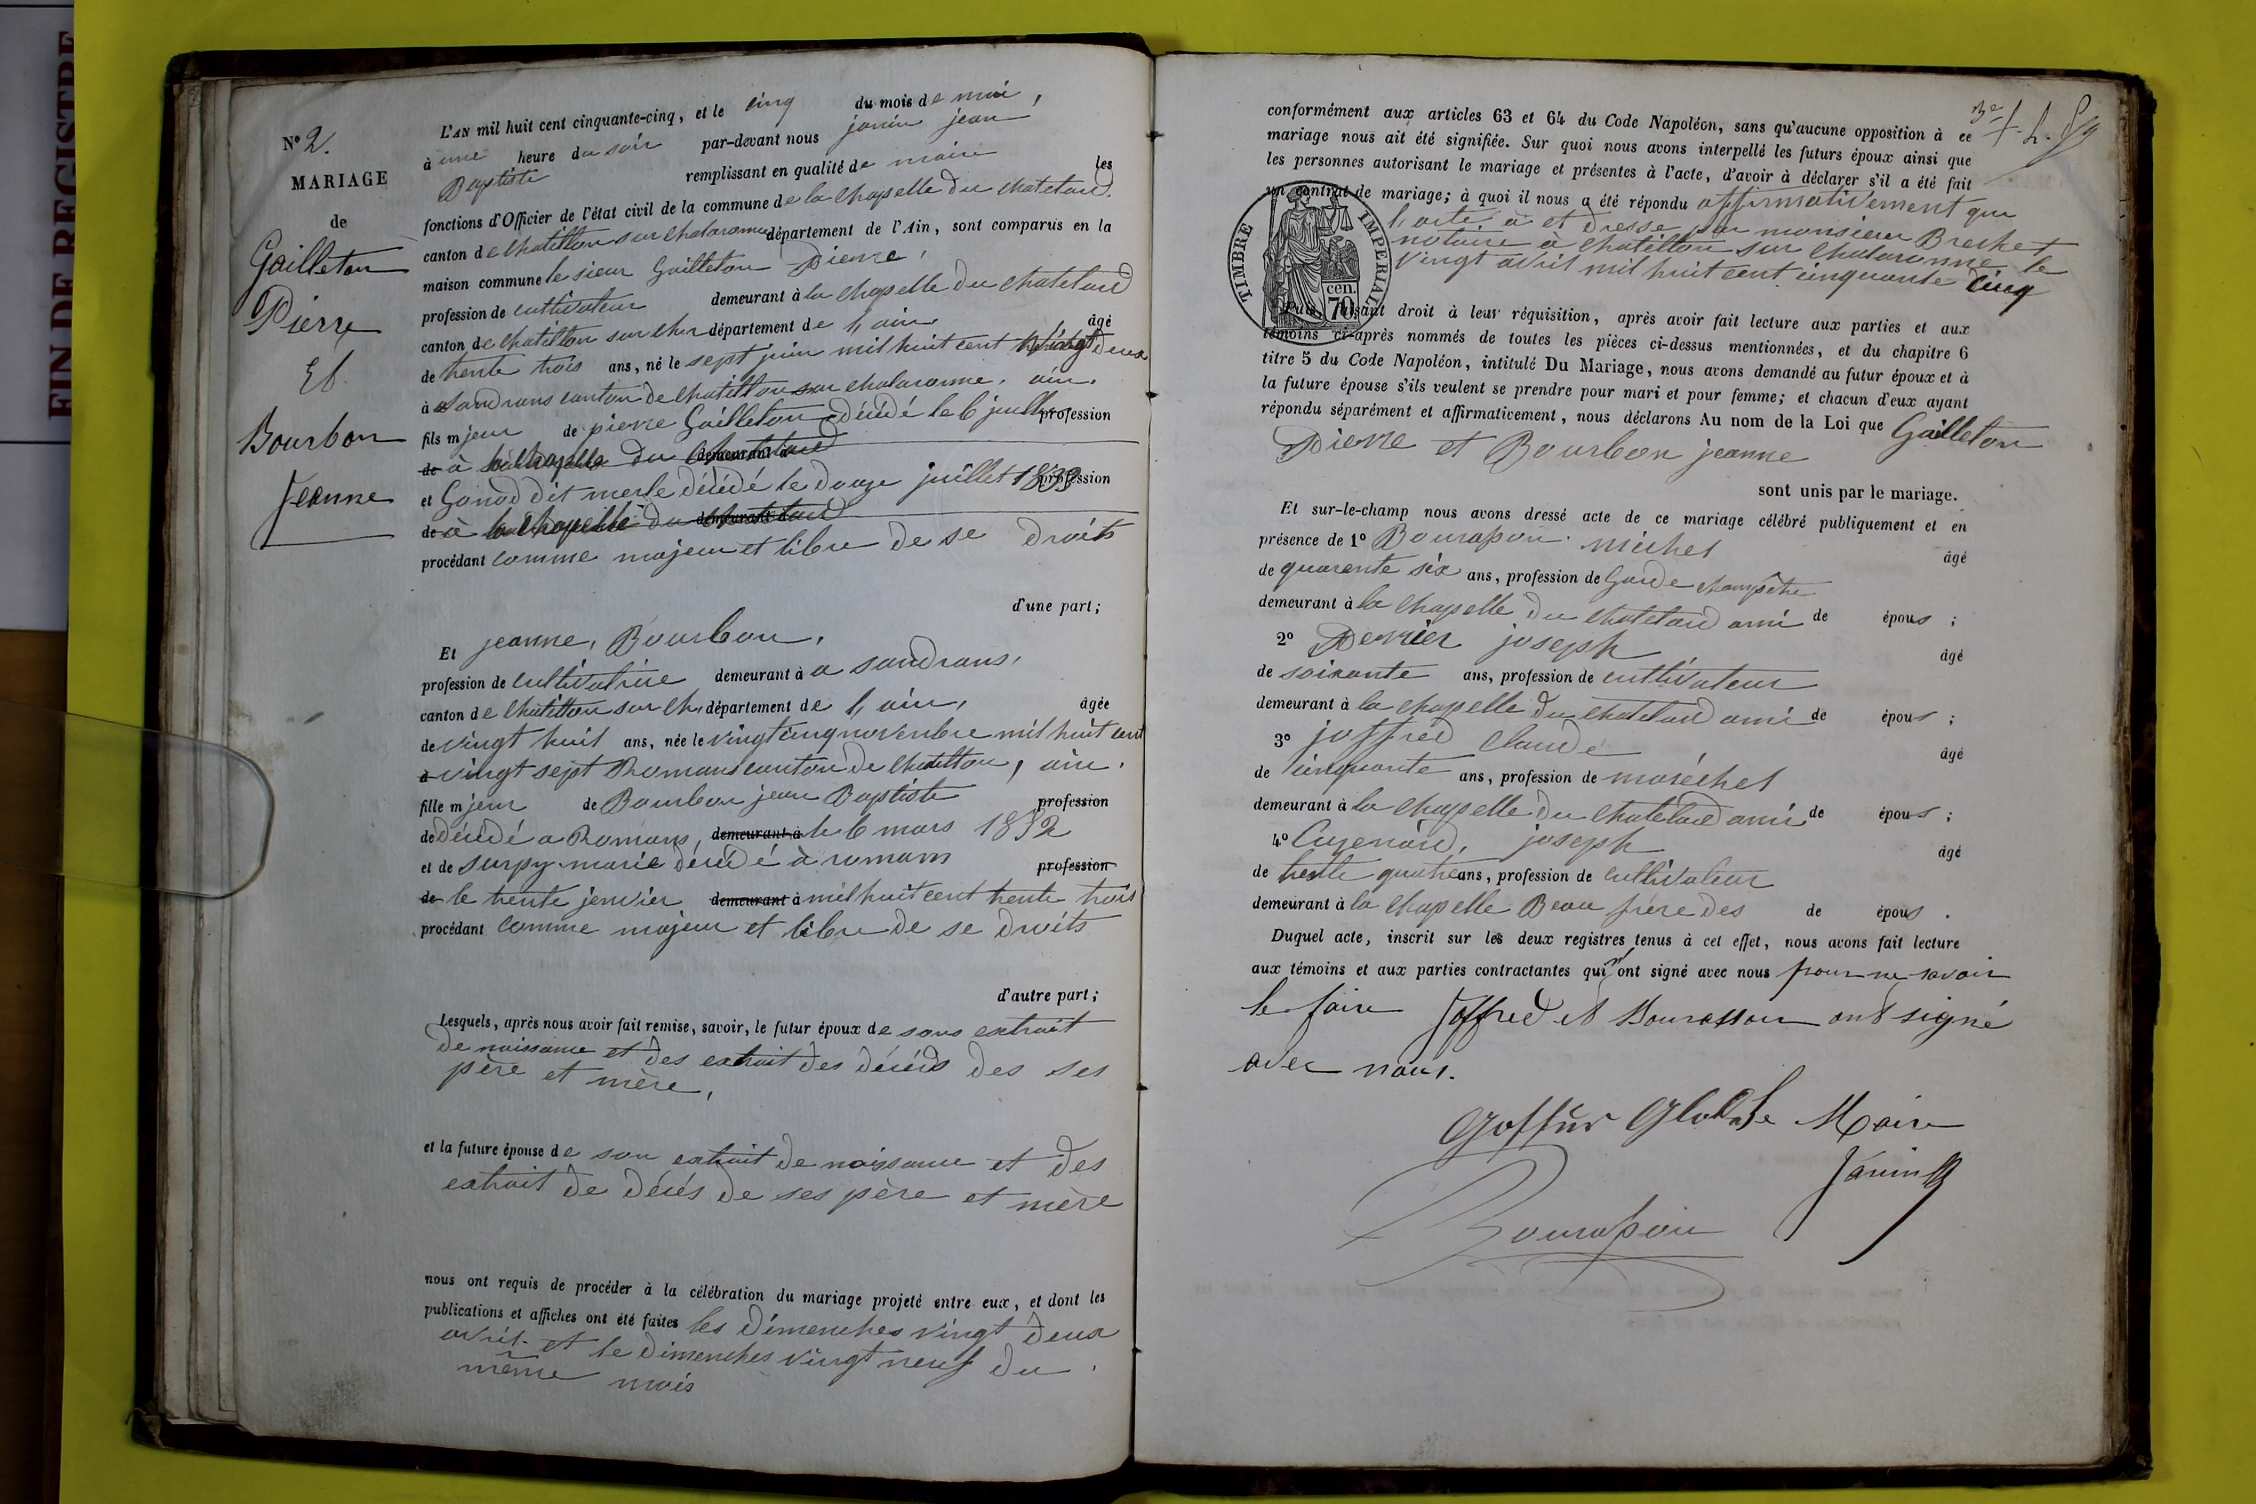 FIN DE REGISTRE
N° 2.
MARIAGE
de
Gailleton
Pierre
Et
Bourbon
Jeanne
L'AN mil huit cent cinquante-cinq, et le cinq du mois de mai,
à une heure du soir par-devant nous janin jean
Baptiste remplissant en qualité de maire les
fonctions d'Officier de l'état civil de la commune de la chapelle du chatelard.
canton de chatillon sur chalaronne département de l'Ain, sont comparus en la
maison commune le sieur Gailleton Pierre,
profession de cultivateur demeurant à la chapelle du chatelard
canton de chatillon sur chr département de l, ain, âgé
de trente trois ans, né le sept juin mil huit cent vingt deux
à Sandrans canton de chatillon sur chalaronne, ain.
fils mjeur de pierre Gailleton décédé le 6 juillet profession
de à la chapelle du chatelard demeurant à
et Ganod dit merle décédé le douze juillet 1833 profession
de à la chapelle du chatelard demeurant à
procédant comme majeur et libre de se droits
d'une part;
Et jeanne, Bourbon,
profession de cultivatrice demeurant à a sandrans,
canton de chatillon sur ch, département de l, ain, âgée
de vingt huit ans, née le vingt cinq novembre mil huit cent
à vingt sept Romans canton de chatillon, ain.
fille mjeur de Bourbon jean Baptiste profession
de décédé a Romans, demeurant à le 6 mars 1852
et de surpy marie décédé à romans profession
de le trente janvier demeurant à mil huit cent trente trois
procédant comme majeur et libre de se droits
d'autre part;
Lesquels, après nous avoir fait remise, savoir, le futur époux de sons extrait
de naissance et des extrait des décéds des ses
père et mère,
et la future épouse de son extrait de naissance et des
extrait de décés de ses père et mère
nous ont requis de procéder à la célébration du mariage projeté entre eux, et dont les
publications et affiches ont été faites les dimenches vingt deux
avril et le dimenches vingt neuf du
même mois
conformément aux articles 63 et 64 du Code Napoléon, sans qu'aucune opposition à ce
mariage nous ait été signifiée. Sur quoi nous avons interpellé les futurs époux ainsi que
les personnes autorisant le mariage et présentes à l'acte, d'avoir à déclarer s'il a été fait
un contrat de mariage; à quoi il nous a été répondu affirmativement que
l, acte à et dresse par monsieur Brechet
notaire à chatillon sur chalaronne le
vingt avril mil huit cent cinquante cinq
TIMBRE IMPERIAL
70 cen.
Puis, faisant droit à leur réquisition, après avoir fait lecture aux parties et aux
témoins ci-après nommés de toutes les pièces ci-dessus mentionnées, et du chapitre 6
titre 5 du Code Napoléon, intitulé Du Mariage, nous avons demandé au futur époux et à
la future épouse s'ils veulent se prendre pour mari et pour femme; et chacun d'eux ayant
répondu séparément et affirmativement, nous déclarons Au nom de la Loi que Gailleton
Pierre et Bourbon jeanne
sont unis par le mariage.
Et sur-le-champ nous avons dressé acte de ce mariage célébré publiquement et en
présence de 1° Bourasson michel âgé
de quarente six ans, profession de Garde champêtre
demeurant à la chapelle du chatelard ami de épous ;
2° Perrier joseph âgé
de soixante ans, profession de cultivateur
demeurant à la chapelle du chatelard ami de épous ;
3° joffred claude âgé
de cinquante ans, profession de maréchel
demeurant à la chapelle du chatelard ami de épous ;
4° Cugenard, joseph âgé
de trente quatre ans, profession de cultivateur
demeurant à la chapelle Beau frère des de épous .
Duquel acte, inscrit sur les deux registres tenus à cet effet, nous avons fait lecture
aux témoins et aux parties contractantes qui n'ont signé avec nous pour ne savoir
le faire Joffred et Bourasson ont signé
avec nous.
Maire
Janin
Bourasson